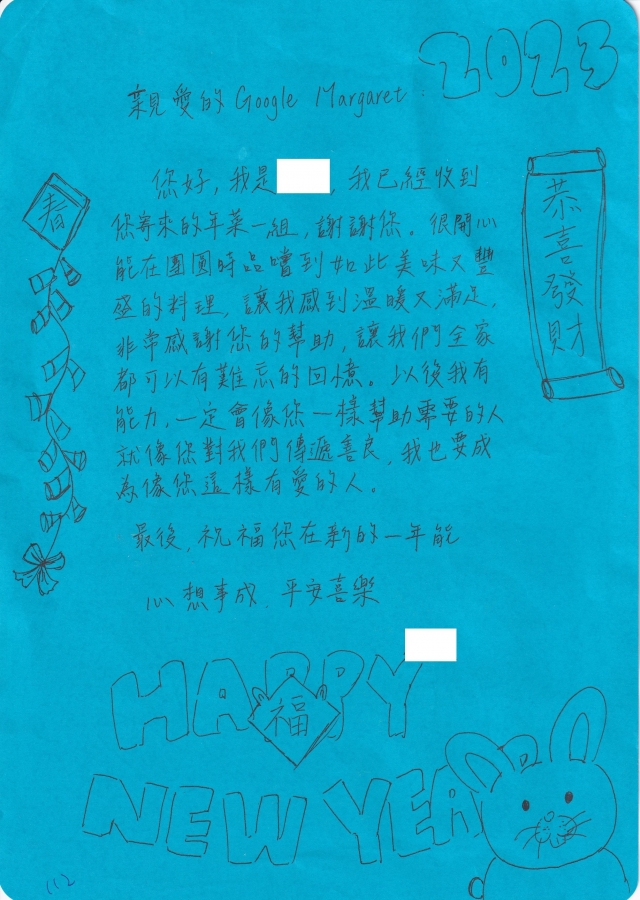 2023
親愛的 Google Margaret：
您好，我是，我已經收到
您寄來的年菜一組，謝謝您。很開心
能在團圓時品嚐到如此美味又豐
盛的料理，讓我感到溫暖又滿足，
非常感謝您的幫助，讓我們全家
都可以有難忘的回憶。以後我有
能力，一定會像您一樣幫助需要的人
就像您對我們傳遞善良，我也要成
為像您這樣有愛的人。
最後，祝福您在新的一年能
心想事成、平安喜樂
春
恭喜發財
HAPPY
福
NEW YEAR
112